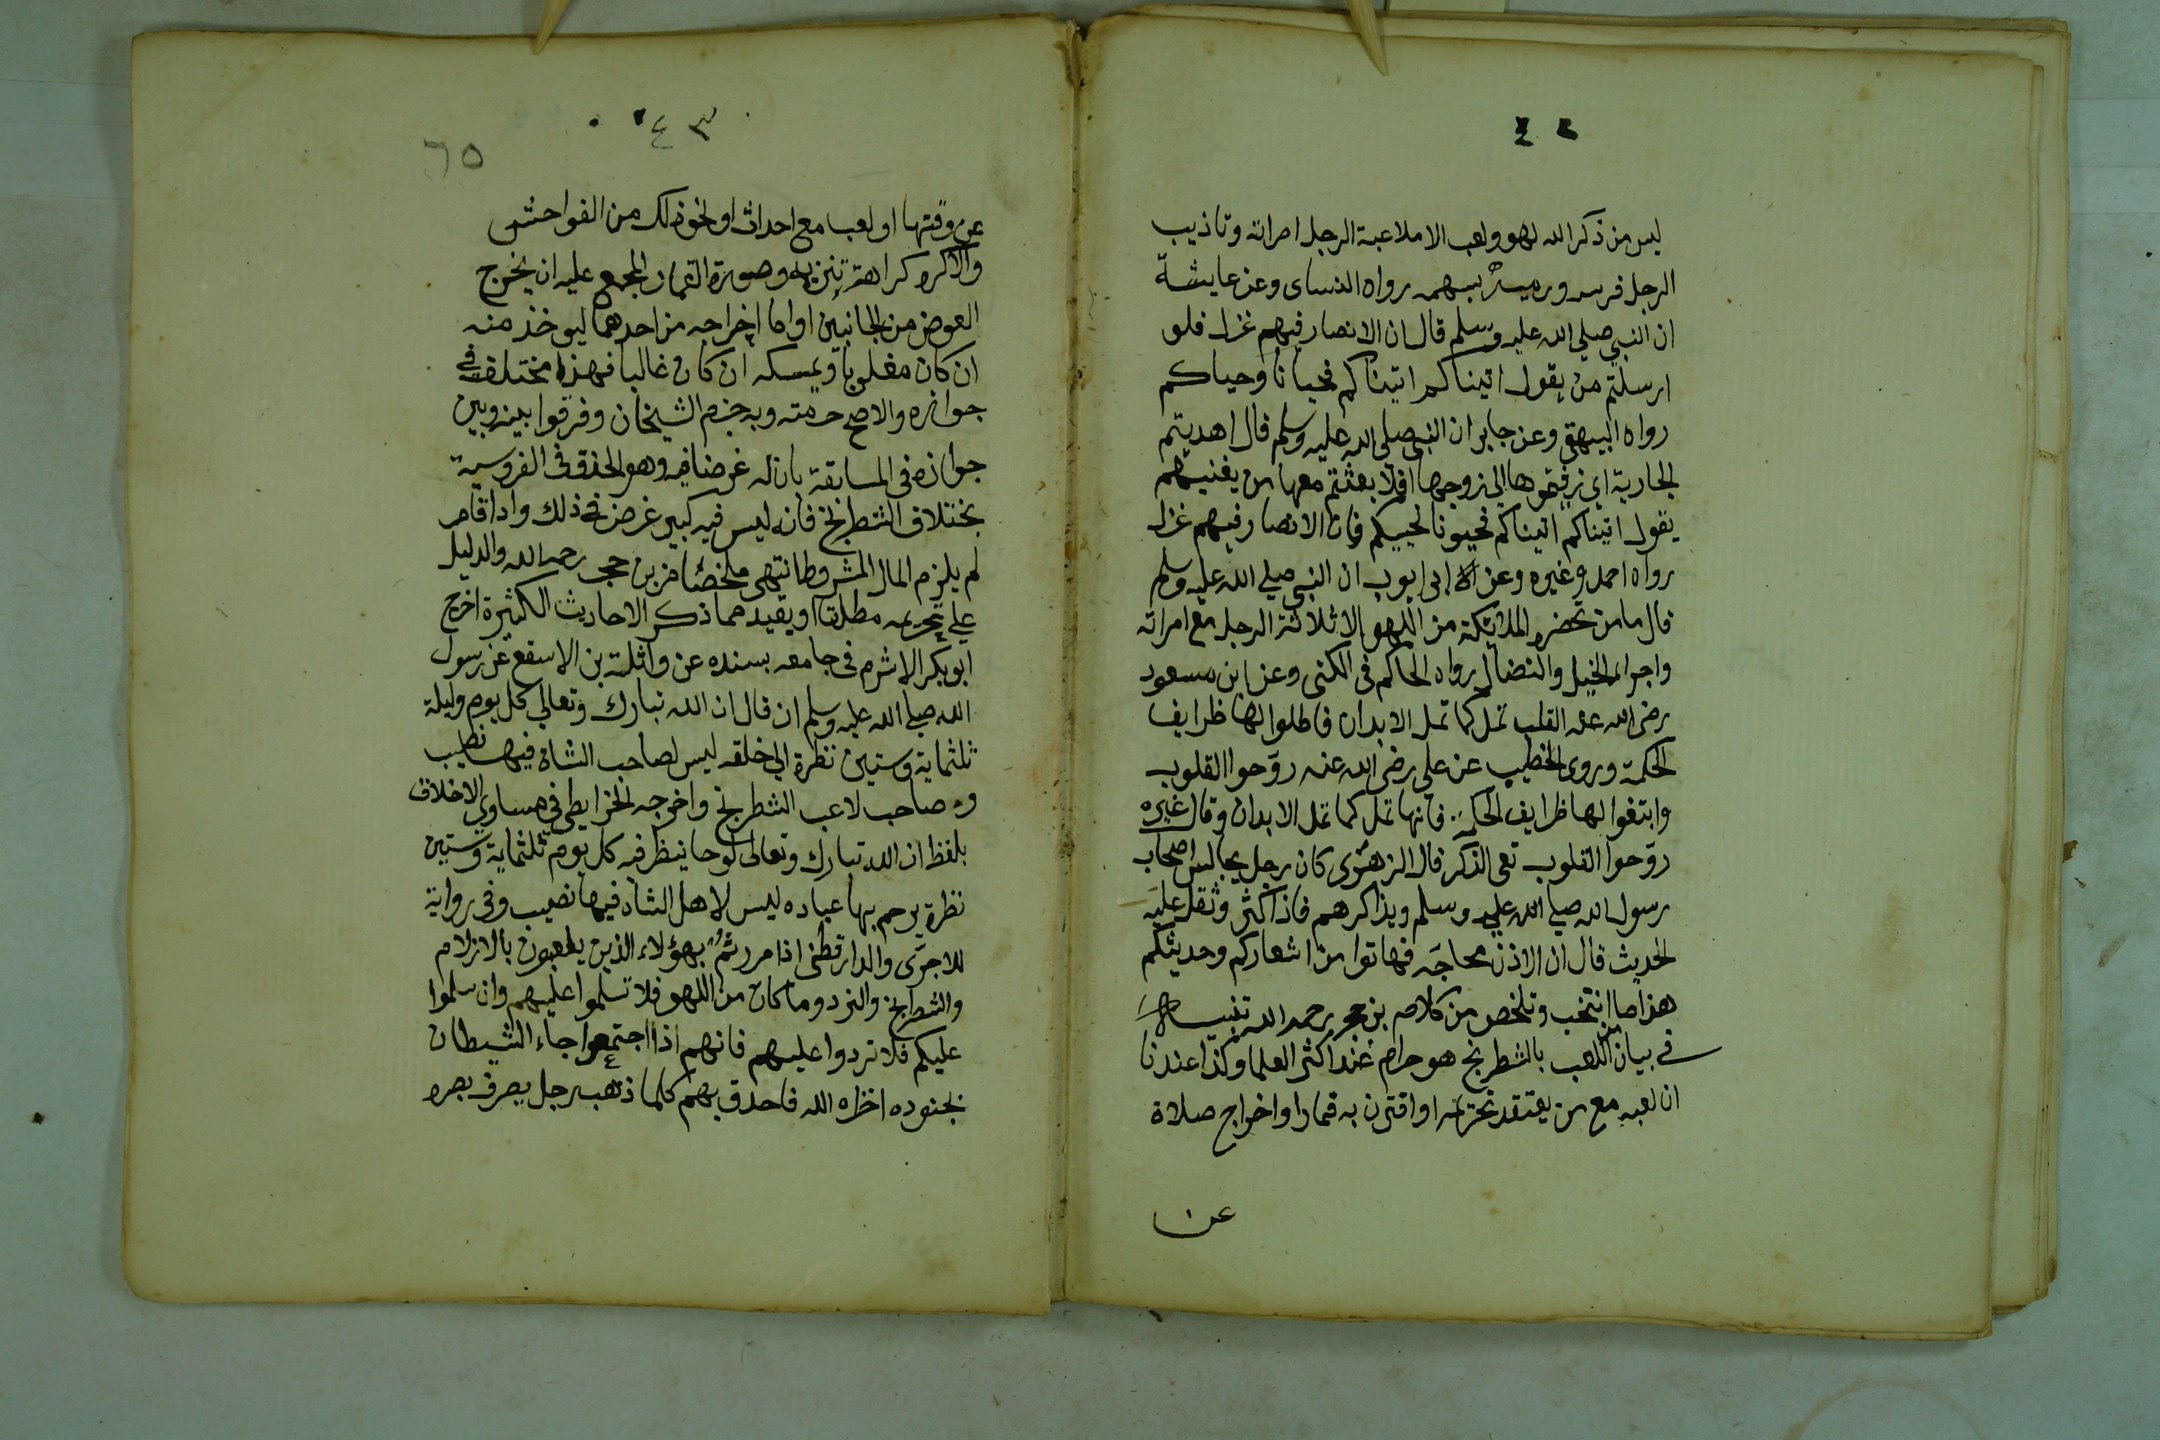 ٤٢
ليس من ذكر الله لهو ولعب الا ملاعبة الرجل امراته وتاذيب
الرجل فرسه ورميه بسهمه رواه النساى وعن عايشة
ان النبي صلي الله عليه وسلم قال ان الانصار فيهم غزل فلو
ارسلتم من يقول اتيناكم اتيناكم فحيانا وحياكم
رواه البيهقي وعن جابر ان النبي صلى الله عليه وسلم قال اهديتم
الجارية اي زفيتموها الى زوجها افلا بعثتم معها من يغنيهم
يقول اتيناكم اتيناكم فحيونا نحييكم فان الانصار فيهم غزل
رواه احمد وغيره وعن ابى ايوب ان النبي صلي الله عليه وسلم
قال ما من تحضره الملائكة من اللهو الا ثلاثة الرجل مع امراته
واجراء الخيل والنضال رواه الحاكم فى الكنى وعن ابن مسعود
رضى الله عنه القلب تمل كما تمل الابدان فاطلوا لها ظرايف
الحكمة وروى الخطيب عن علي رضى الله عنه روّحوا القلوب
وابتغوا لها ظرايف الحكمة فانها تمل كما تمل الابدان وقال غيره
روّحوا القلوب تعى الذكر قال الزهرى كان رجل يجالس اصحاب
رسول الله صلي الله عليه وسلم ويذاكرهم فاذا كثر وثقل عليه
الحديث قال ان الاذن مجاجه فهاتوا من اشعاركم وحديثكم
هذا ما انتخب وتلخص من كلام بن حجر رحمه الله تنبيه
في بيان اللعب بالشطرنج هو حرام عند اكثر العلما وكذا عندنا
ان لعبه مع من يعتقد تحريمه او اقترن به قمار او اخراج صلاة
عن
٤٣
٦٥
عن وقتها او لعب مع احداث او نحو ذلك من الفواحش
والا كره كراهة تنزيه وصورة القمار المجمع عليه ان يخرج
العوض من الجانبين او اما اخراجه من احدهما ليوخذ منه
ان كان مغلوبا ويمسكه ان كان غالبا فهذا مختلف في
جوازه والاصح حرمته وبه جزم الشيخان وفرقوا بينه وبين
جوازه فى المسابقة بان له غرضا فيه وهو الحذق فى الفروسية
بختلاف الشطرنج فانه ليس فيه كبير غرض في ذلك واذا قامر
لم يلزم المال المشروط انتهى ملخصا من بن حجر رحمه الله والدليل
علي تحريمه مطلقا او يقيد مما ذكر الاحاديث الكثيرة اخرج
ابو بكر الاثرم فى جامعه بسنده عن واثلة بن الاسقع عن رسول
الله صلي الله عليه وسلم ان قال ان الله تبارك وتعالي كل يوم وليلة
ثلثماية وستين نظرة الي خلقه ليس لصاحب الشاة فيها نصيب
وه صاحب لاعب الشطرنج واخرجه الخرايطي في مساوي الاخلاق
بلفظ ان الله تبارك وتعالى لوحا ينظر فيه كل يوم ثلثماية وستين
نظرة يرحم بها عباده ليس لاهل الشاه فيها نصيب وفى رواية
للاجرّى والدارقطنى اذا مررتم بهؤلاء الذين يلعبون بالازلام
والشطرنج والنرد وما كان من اللهو فلا تسلموا عليهم وان سلموا
عليكم فلا تردوا عليهم فانهم اذا اجتمعوا جاء الشيطان
بجنوده اخزاه الله فاحدق بهم كلما ذهب رجل يصرف بصره